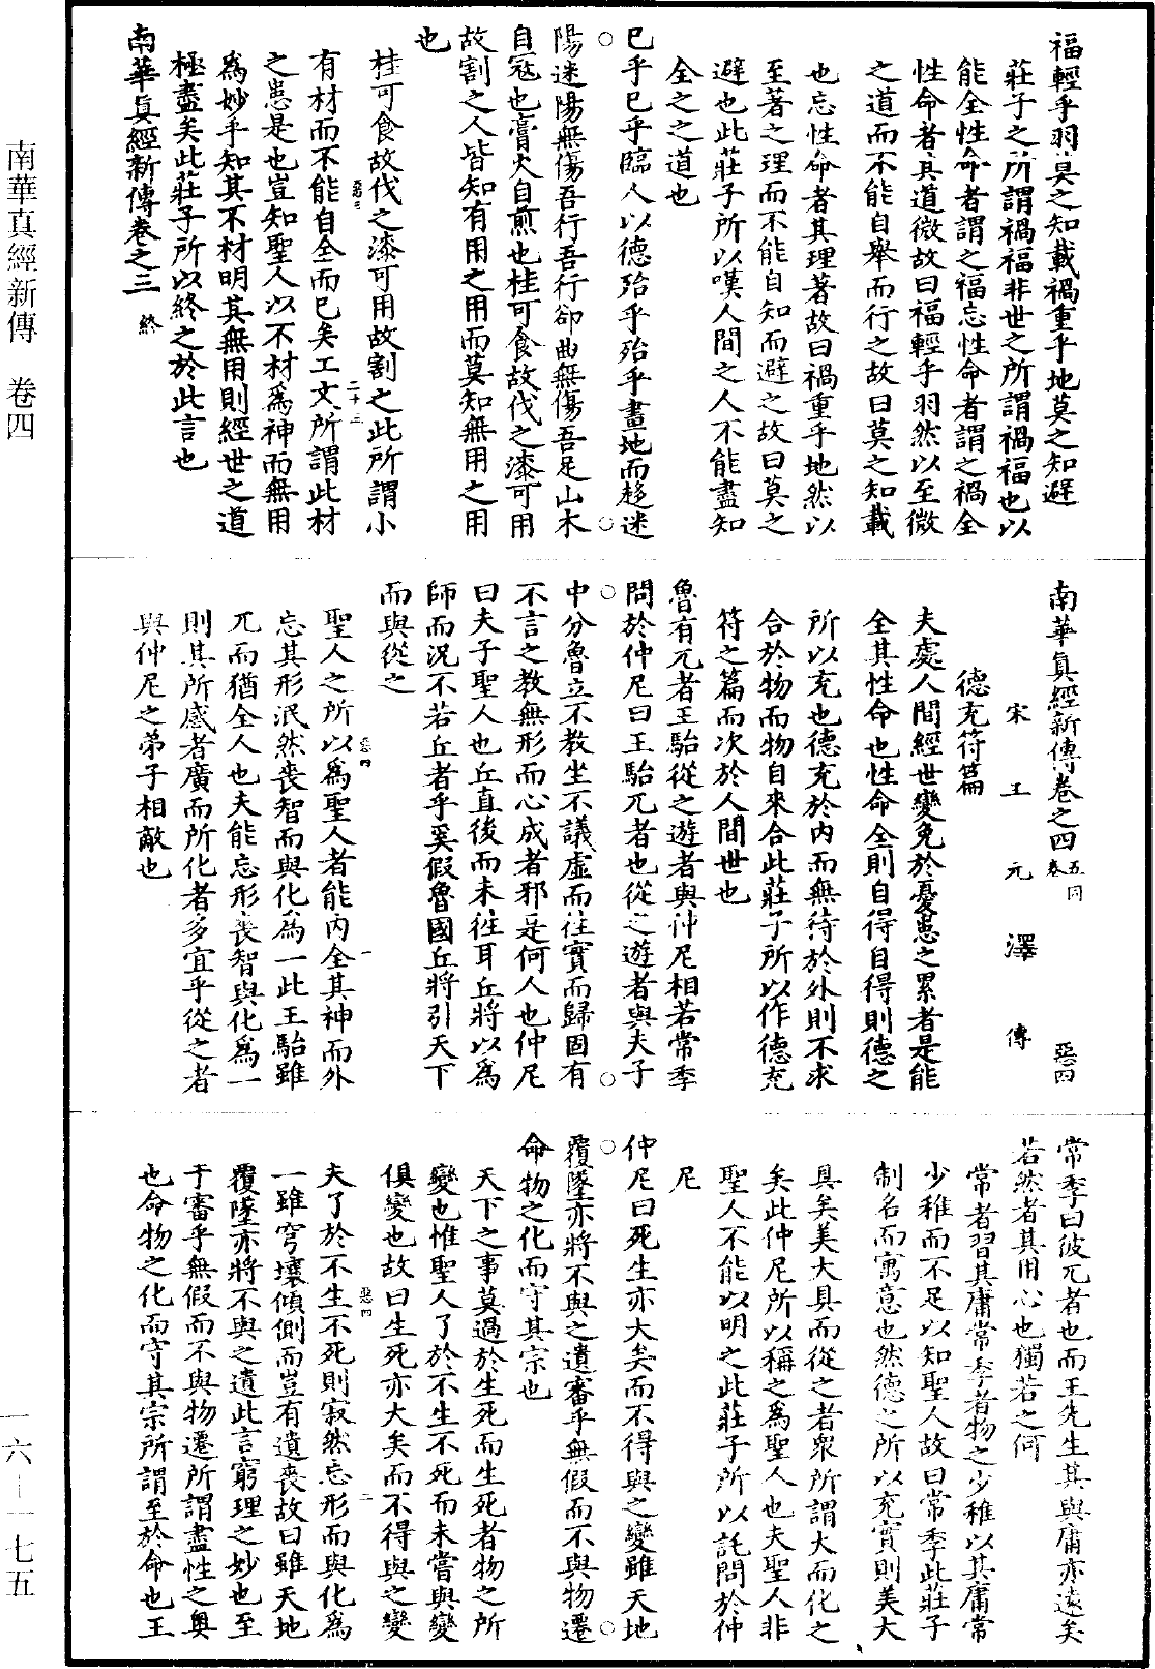 福輕乎羽莫之知載禍重乎地莫之知避
莊子之所謂禍福非世之所謂禍福也以
能全性命者謂之福忘性命者謂之禍全
性命者其道微故曰福輕乎羽然以至微
之道而不能自舉而行之故曰莫之知載
也忘性命者其理著故曰禍重乎地然以
至著之理而不能自知而避之故曰莫之
避也此莊子所以嘆人間之人不能盡知
全之之道也
已乎已乎臨人以德殆乎殆乎畫地而趍迷
陽迷陽無傷吾行吾行卻曲無傷吾足山木
自寇也膏火自煎也桂可食故伐之漆可用
故割之人皆知有用之用而莫知無用之用
也
桂可食故伐之漆可用故割之此所謂小
有材而不能自全而已矣工文所謂此材
之患是也豈知聖人以不材為神而無用
為妙乎知其不材明其無用則經世之道
極盡矣此莊子所以終之於此言也
南華真經新傳卷之三 終
南華真經新傳卷之四 五同卷 惡四
宋 王 元 澤 傳
德充符篇
夫處人間經世變免於憂患之累者是能
全其性命也性命全則自得自得則德之
所以充也德充於內而無待於外則不求
合於物而物自來合此莊子所以作德充
符之篇而次於人間世也
魯有兀者王駘從之遊者與仲尼相若常季
問於仲尼曰王駘兀者也從之遊者與夫子
中分魯立不教坐不議虛而往實而歸固有
不言之教無形而心成者邪是何人也仲尼
曰夫子聖人也丘直後而未往耳丘將以為
師而況不若丘者乎奚假魯國丘將引天下
而與從之
聖人之所以為聖人者能內全其神而外
忘其形泯然喪智而與化為一此王駘雖
兀而猶全人也夫能忘形喪智與化為一
則其所感者廣而所化者多宜乎從之者
與仲尼之弟子相敵也
常季曰彼兀者也而王先生其與庸亦遠矣
若然者其用心也獨若之何
常者習其庸常季者物之少稚以其庸常
少稚而不足以知聖人故曰常季此莊子
制名而寓意也然德之所以充實則美大
具矣美大具而從之者衆所謂大而化之
矣此仲尼所以稱之為聖人也夫聖人非
聖人不能以明之此莊子所以託問於仲
尼
仲尼曰死生亦大矣而不得與之變雖天地
覆墜亦將不與之遺審乎無假而不與物遷
命物之化而守其宗也
天下之事莫過於生死而生死者物之所
變也惟聖人了於不生不死而未嘗與變
俱變也故曰生死亦大矣而不得與之變
夫了於不生不死則寂然忘形而與化為
一雖穹壤傾側而豈有遺喪故曰雖天地
覆墜亦將不與之遺此言窮理之妙也至
于審乎無假而不與物遷所謂盡性之奧
也命物之化而守其宗所謂至於命也王
南華真經新傳 卷四
一六—一七五